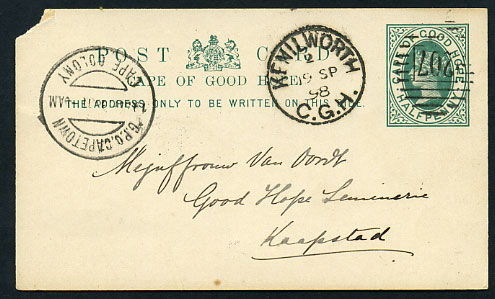 POST CARD
CAPE OF GOOD HOPE
THE ADDRESS ONLY TO BE WRITTEN ON THIS SIDE.
KENILWORTH
2
9 SP
98
C.G.H.
CAPE OF GOOD HOPE
HALFPENNY
CAPE COLONY
AM
G.P.O. CAPETOWN
Mejuffrouw Van Oordt
Good Hope Seminarie
Kaapstad